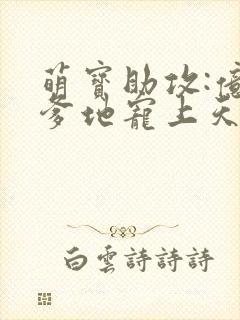 萌寶助攻:億
爹地寵上天
白雲詩詩詩